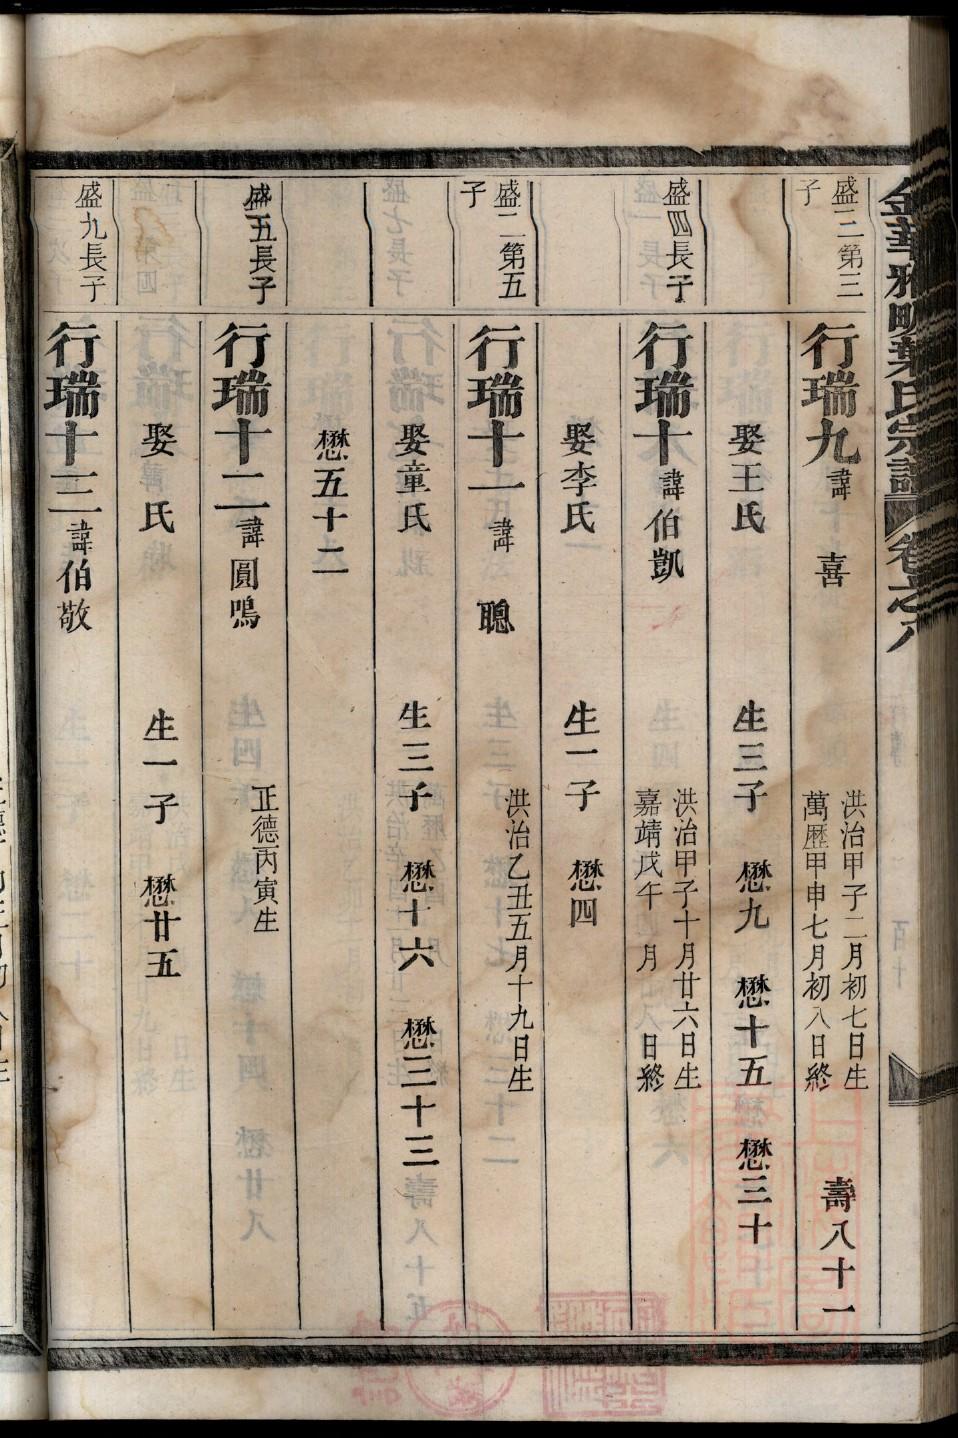 金華雅畈葉氏宗譜 卷之八
盛三第三子
行瑞九 諱 喜 洪治甲子二月初七日生 萬歷甲申七月初八日終 壽八十一
娶王氏 生三子 懋九 懋十五 懋三十
盛四長子
行瑞十 諱伯凱 洪治甲子十月廿六日生 嘉靖戊午 月 日終
娶李氏 生一子 懋四
盛二第五子
行瑞十一 諱 聰 洪治乙丑五月十九日生
娶童氏 生三子 懋十六 懋三十三
懋五十二
盛五長子
行瑞十二 諱圓鳴 正德丙寅生
娶 氏 生一子 懋廿五
盛九長子
行瑞十三 諱伯敬